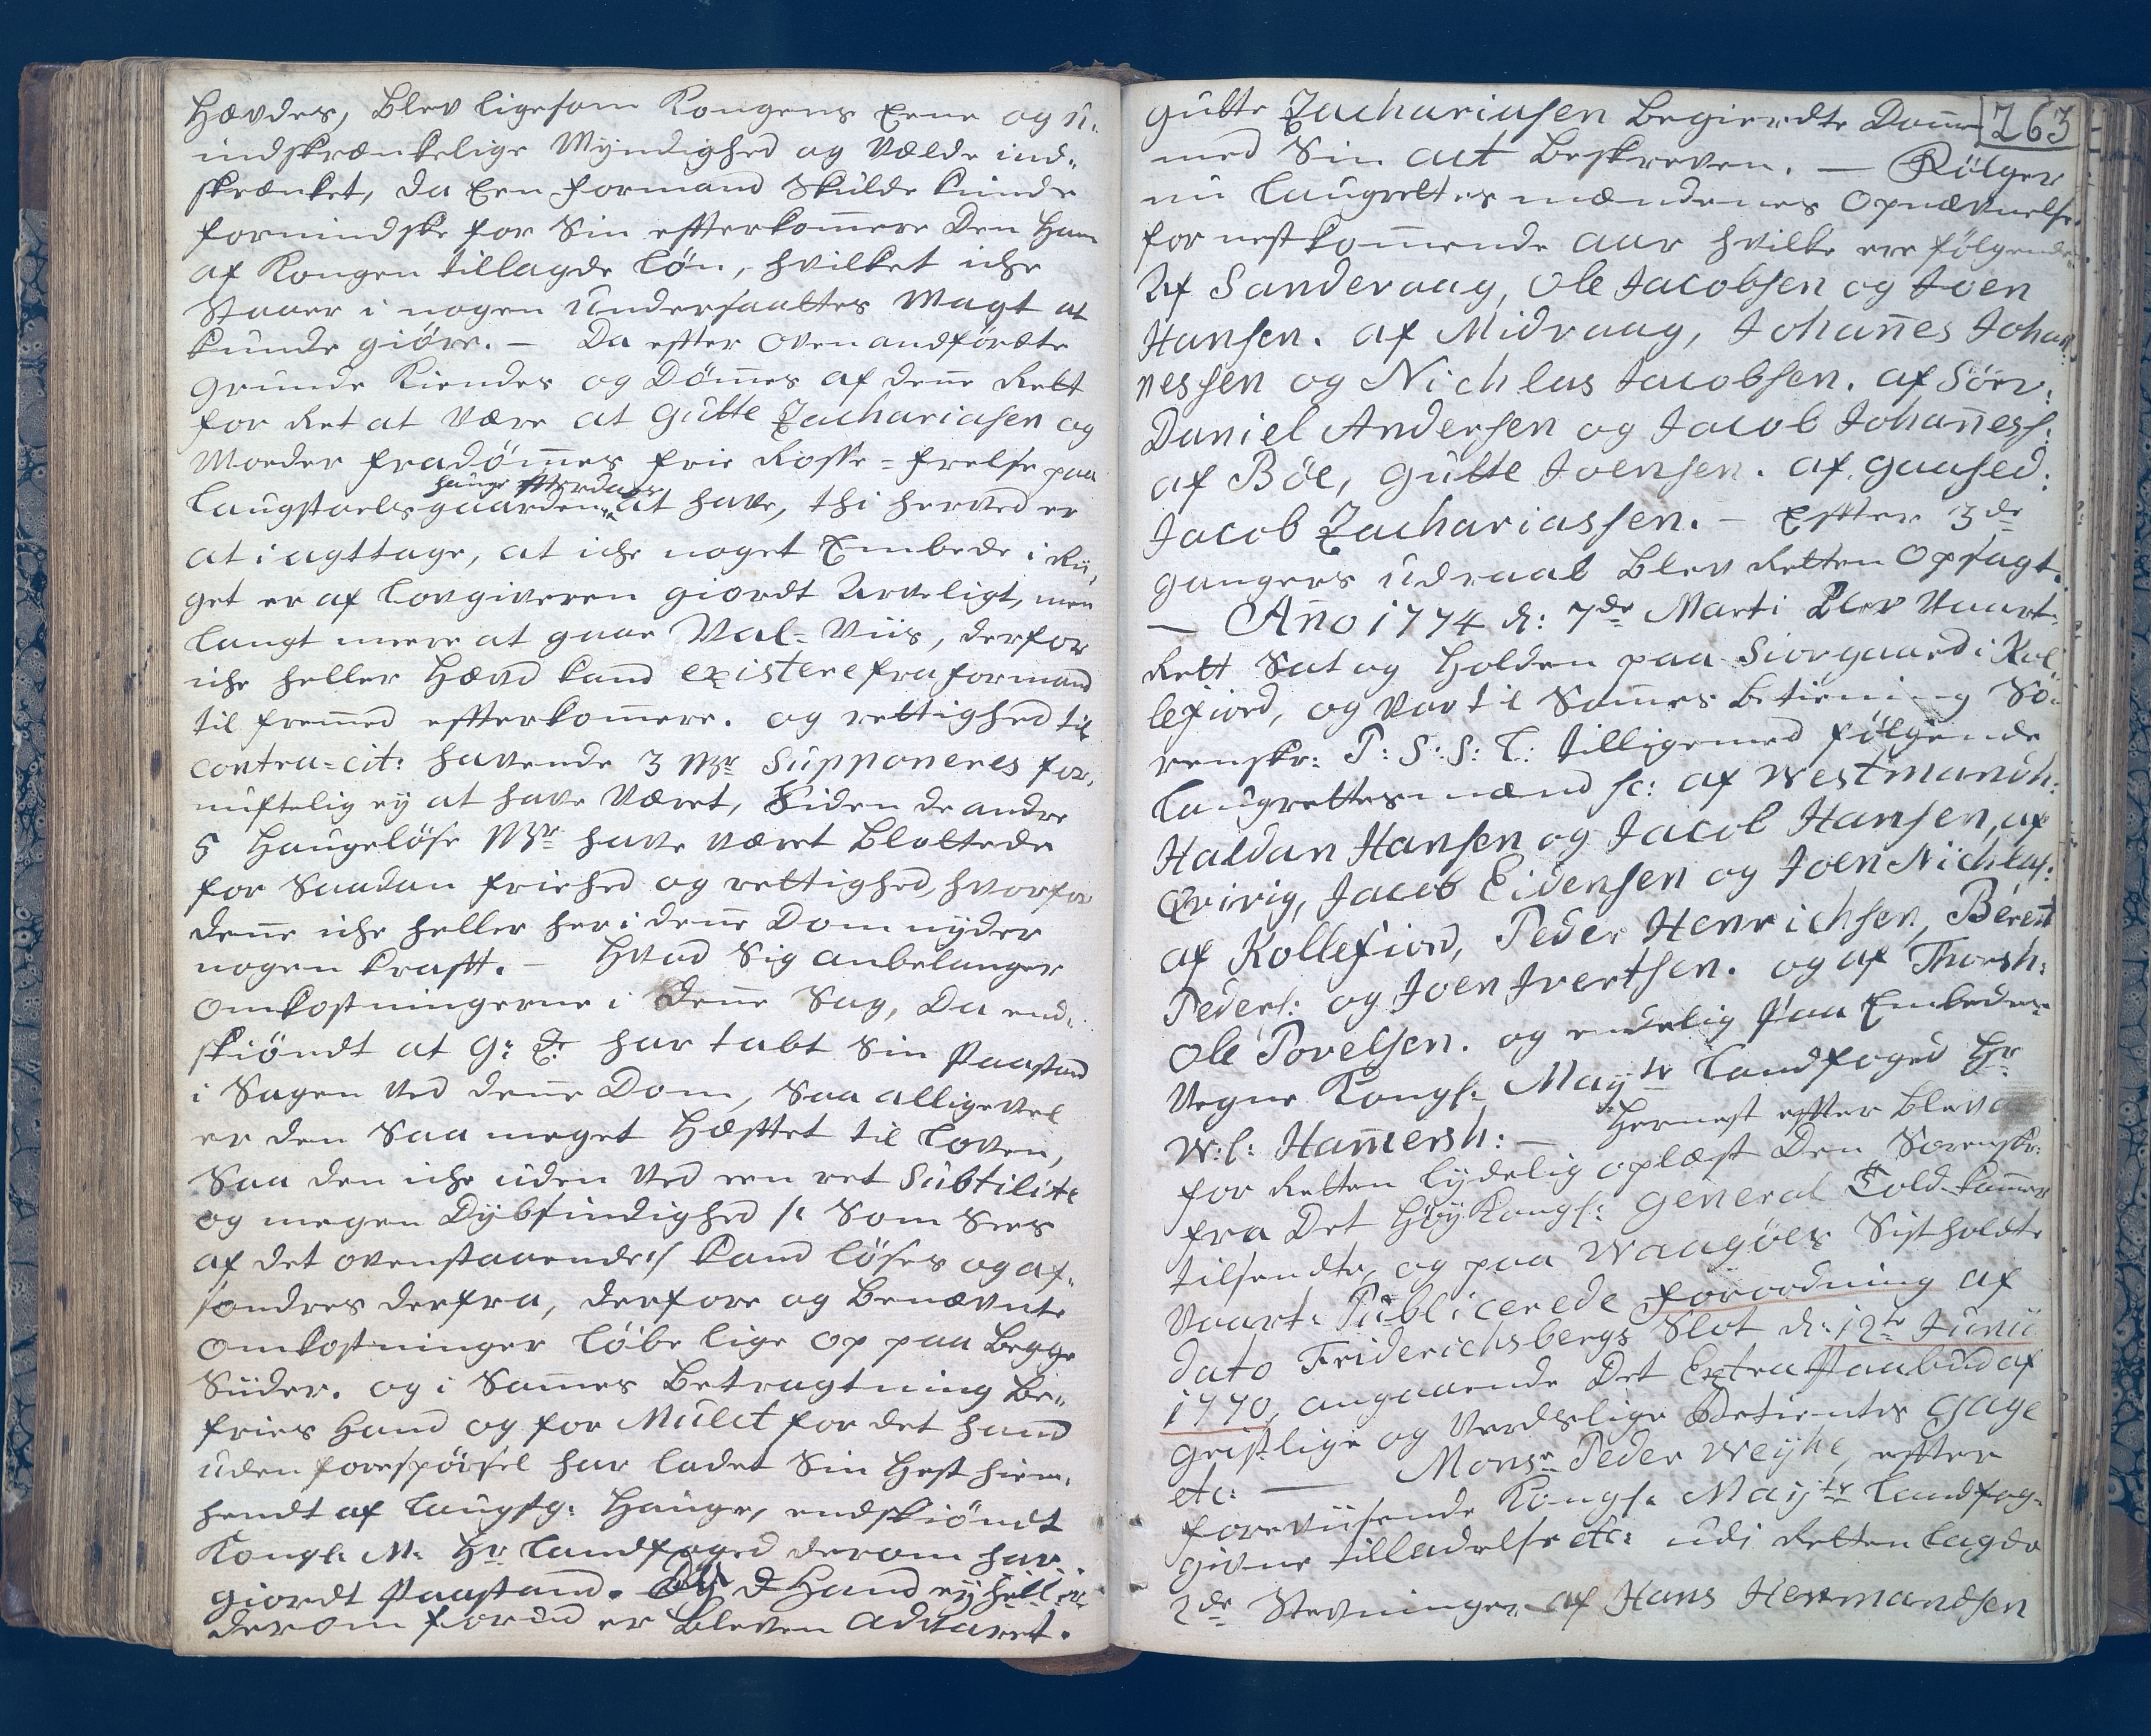 Hævdes, blev ligesom Kongens Eene og u-
indskrænkelige Myndighed og Vælde ind-
skrænket, da Een formand skulde kunde
formindske for Sin efterkom̄ere Den Ham
af Kongen tillagde Løn, hvilket iche
Staaer i nogen Undersaattes Magt at
kunde giöre. — Da efter ovenandförte
grunde Kiendes og Döm̄es af den̄e Rett
for Ret at være at Gutte Zachariasen og
Moeder fradöm̄es frie Rosse-frelse paa
hauge efterdags
Laugstoels gaarden at have, thi herved er
at i agttage, at iche noget Embede i Rii-
get er af Lovgiveren giordt Arveligt, men
langt meere at gaae Val-Viis, derfor
iche heller Hævd kand existere fra formand
til frem̄ed efterkom̄ere. og rettighed til
contra-cit: havende 3 Mr Supponeres for-
nuftelig ej at have været, Siden de andre
5 Haugelöse Mr have været blottede
for Saadan friehed og rettighed, hvorfor
den̄e iche heller her i den̄e Dom nyder
nogen Krafft. — Hvad Sig anbelanger
omkostningerne i Den̄e Sag, Da end-
skiöndt at G: Z: har tabt Sin Paastand
i Sagen ved den̄e Dom, Saa alligevel
er den Saa meget Hæfttet til Loven,
Saa den iche uden ved een ret Subtilite
og megen Dybsindighed /: Som Sees
af det ovenstaaende :/ kand löses og af-
söndres derfra, derfore og benævnte
omkostninger Löbe lige op paa begge
Siider. og i Sam̄es Betragtning be-
fries Hand og for Mulct for det hand
uden forespörsel har ladet Sin Hest hiem-
hendt af Laugstg: Hauge, endskiöndt
Kongl: M: Hr Landfoged derom har
giordt Paastand. Hand ej heller
derom forud er bleven advaret.
Gutte Zachariasen begierdte Dom̄en 263
med Sin act beskreven. — Fölger
nu Laugrettes mændenes opnævnelse
for nestkom̄ende aar hvilke ere fölgende
Af Sandevaag, Ole Jacobsen og Joen
Hansen. af Midvaag, Johan̄es Johan-
nessen og Nichlas Jacobsen. af Sörv:
Daniel Andersen og Jacob Johan̄ess:
af Böe, Gutte Joensen. af Gaased:
Jacob Zachariassen. — Efter 3de
gangers udraab blev Retten opsagt.
— An̄o 1774 d: 7de Marti blev Vaart-
Rett Sat og Holden paa Siorgaard i Kol-
lefiord, og var til Sam̄es betiening So-
renskr: P: S: S: L: tilligemed fölgende
Laugrettesmænd sc: af Westmanh:
Haldan Hansen og Jacob Hansen, af
Qvivig, Jacob Eidensen og Joen Nichlas:
af Kollefiord, Peder Henrichsen, Berent
Peders: og Joen Ivertsen. og af Thorsh:
Ole Povelsen. og endelig paa Embeders
Vegne Kongl: Mayts Landfoged Hr
W: L: Ham̄ersh: — Hernest efter blev
for Retten lydelig oplæst Den Sorenskr:
fra Det Höy Kongl: General Told-kam̄er
tilsendte, og paa Waagöes Sistholdte
Vaart: Publicerede forordning af
dato Friderichsbergs Slot d: 12te Junii
1770, angaaende Det Extra Paabud af
geistlige og Verdslige Betientes Gage
etc: — Monsr Peder Weyhe, efter
foreviisende Kongl: Mayts Landfog-
givne tilladelse etc: udi Retten lagde
2de Stevninger af Hans Hermandsen